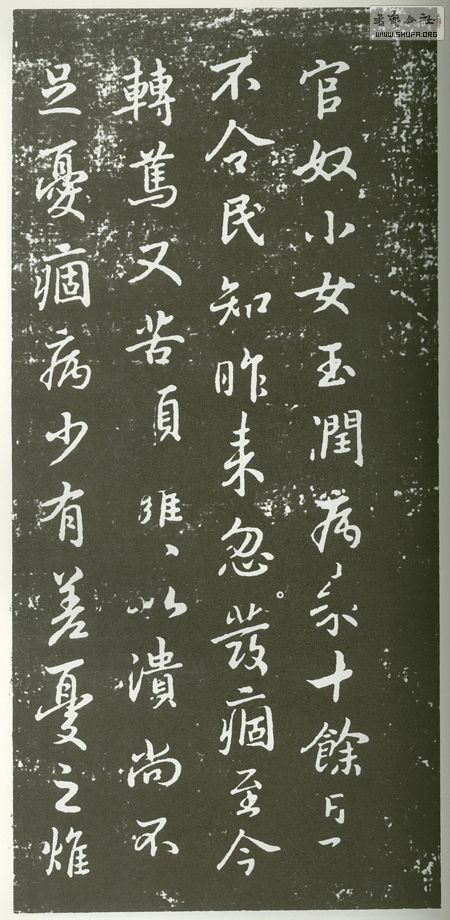 官奴小女玉潤病來十餘日了
不令民知昨來忽發痼至今
轉篤又苦頭癰、以潰尚不
足憂痼病少有差憂之燋
書藝公社
WWW.SHUFA.ORG